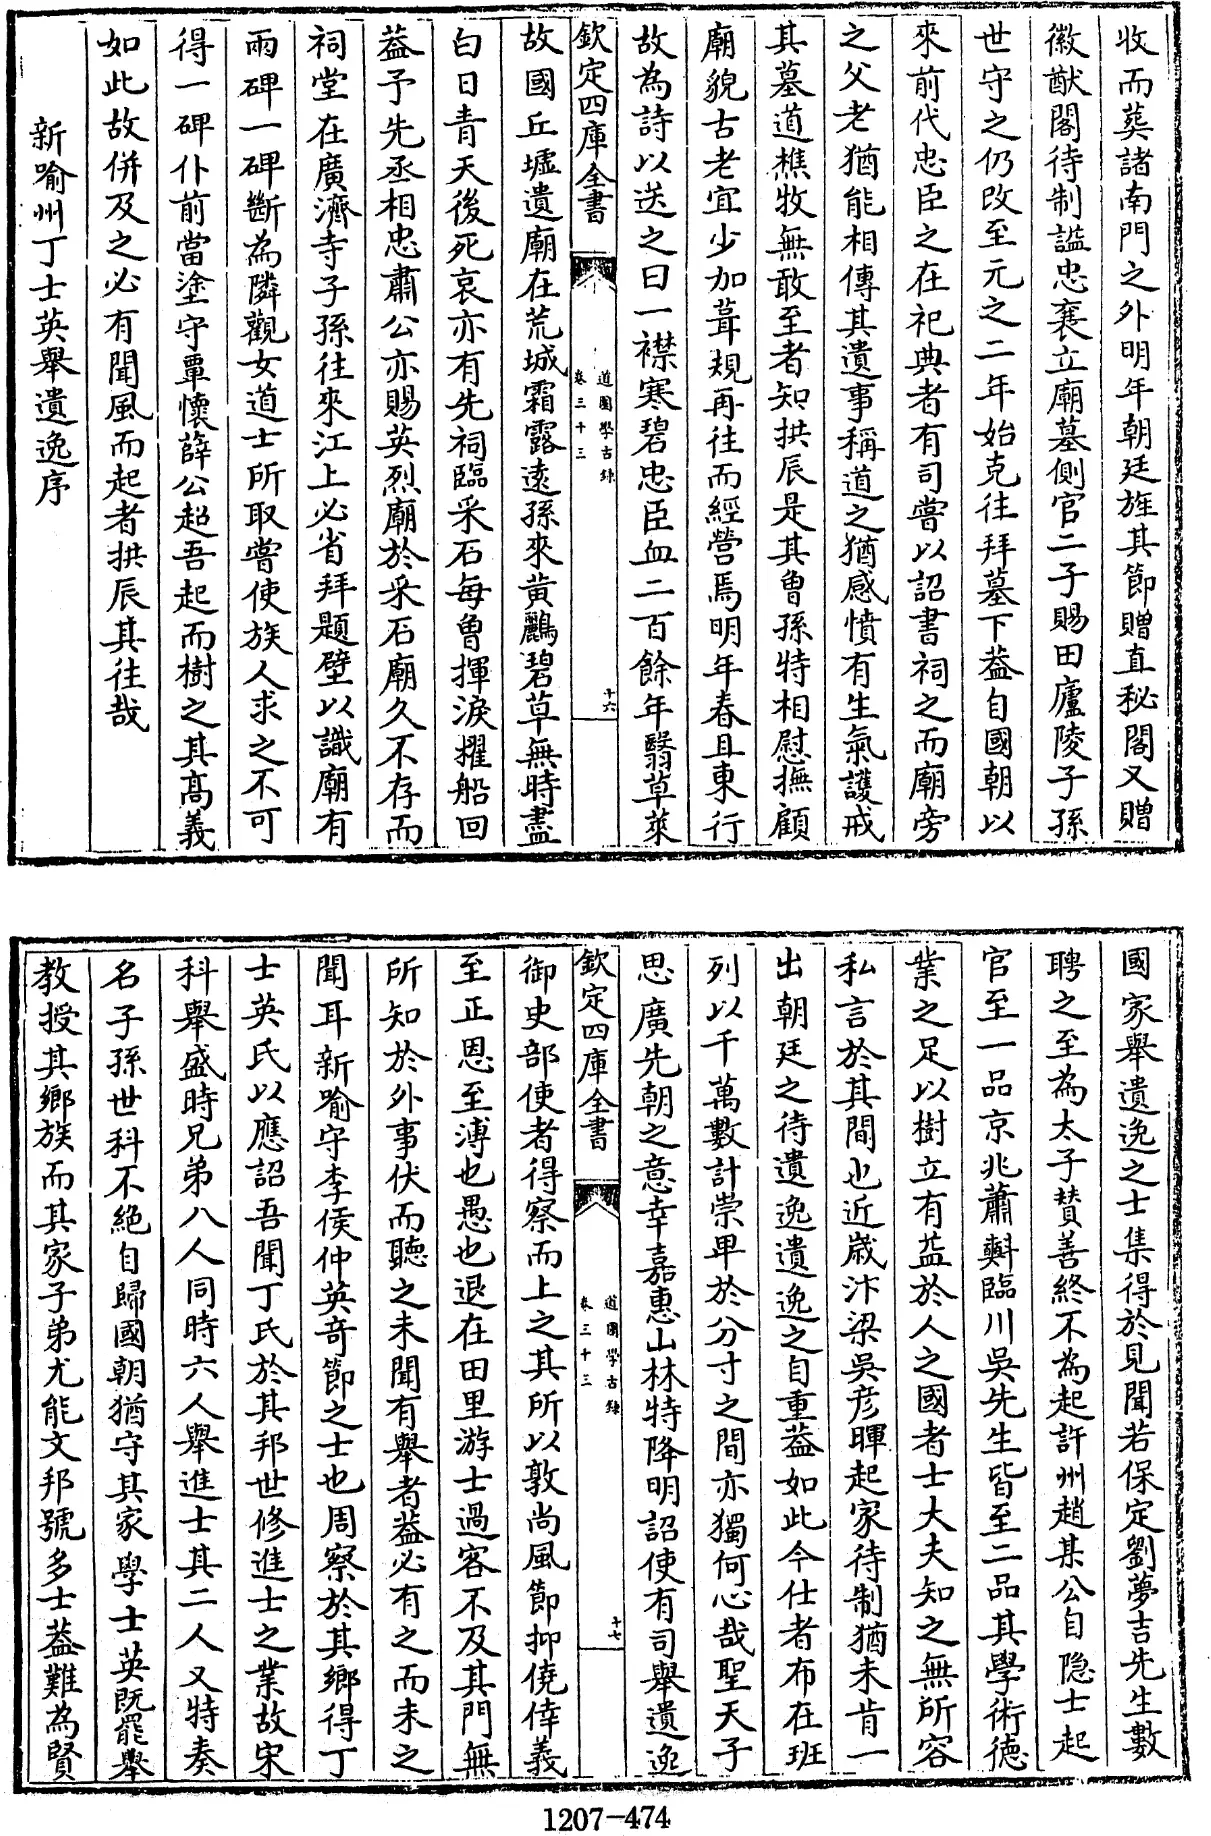 收而葬諸南門之外明年朝廷旌其節贈直秘閣又贈
徽猷閣待制諡忠襄立廟墓側官二子賜田廬陵子孫
世守之仍改至元之二年始克往拜墓下葢自國朝以
來前代忠臣之在祀典者有司嘗以詔書祠之而廟旁
之父老猶能相傳其遺事稱道之猶感憤有生氣護戒
其墓道樵牧無敢至者知拱辰是其曾孫特相慰撫顧
廟貌古老宜少加葺規再往而經營焉明年春且東行
故為詩以送之曰一襟寒碧忠臣血二百餘年翳草萊
欽定四庫全書
道園學古錄
卷三十三
十六
故國丘墟遺廟在荒城霜露遠孫來黄鸝碧草無時盡
白日青天後死哀亦有先祠臨采石每曾揮淚擢船回
葢予先丞相忠肅公亦賜英烈廟於采石廟久不存而
祠堂在廣濟寺子孫往來江上必省拜題壁以識廟有
兩碑一碑斷為隣觀女道士所取嘗使族人求之不可
得一碑仆前當塗守覃懷薛公超吾起而樹之其高義
如此故併及之必有聞風而起者拱辰其往哉
新喻州丁士英舉遺逸序
國家舉遺逸之士集得於見聞若保定劉夢吉先生數
聘之至為太子賛善終不為起許州趙某公自隐士起
官至一品京兆蕭𣂏臨川吳先生皆至二品其學術德
業之足以樹立有益於人之國者士大夫知之無所容
私言於其間也近嵗汴梁吳彦暉起家待制猶未肯一
出朝廷之待遺逸遺逸之自重葢如此今仕者布在班
列以千萬數計崇卑於分寸之間亦獨何心哉聖天子
思廣先朝之意幸嘉惠山林特降明詔使有司舉遺逸
欽定四庫全書
道園學古錄
卷三十三
十七
御史部使者得察而上之其所以敦尚風節抑僥倖義
至正恩至溥也愚也退在田里游士過客不及其門無
所知於外事伏而聽之未聞有舉者葢必有之而未之
聞耳新喻守李侯仲英奇節之士也周察於其鄉得丁
士英氏以應詔吾聞丁氏於其邦世修進士之業故宋
科舉盛時兄弟八人同時六人舉進士其二人又特奏
名子孫世科不絶自歸國朝猶守其家學士英既罷舉
教授其鄉族而其家子弟尤能文邦號多士葢難為賢
1207-474